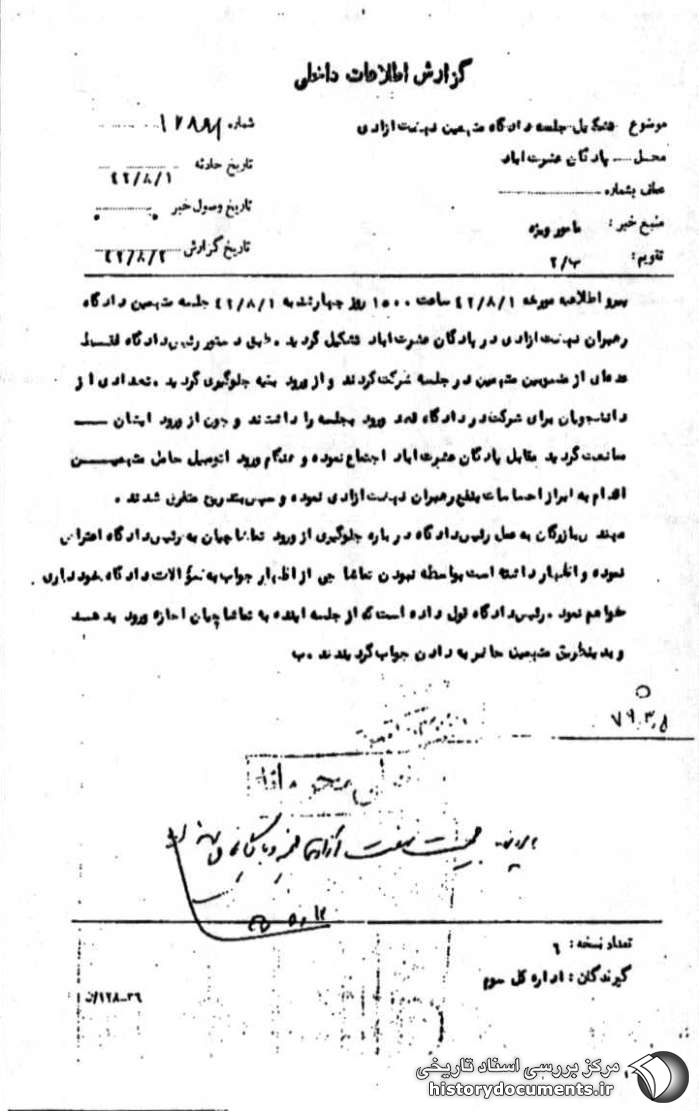 گزارش اطلاعات داخلی
موضوع تشکیل جلسه دادگاه متهمین نهضت ازادی
شماره
محل پادگان عشرت اباد
تاریخ حادثه ۴۲/۸/۱
عطف بشماره
تاریخ وصول خبر
منبع خبر : مامور ویژه
تاریخ گزارش ۴۲/۸/۲
تقویم : ب/۲
پیرو اطلاعیه مورخه ۴۲/۸/۱ ساعت ۱۵۰۰ روز چهارشنبه ۴۲/۸/۱ جلسه متهمین دادگاه
رهبران نهضت ازادی در پادگان عشرت اباد تشکیل گردید . طبق دستور رئیس دادگاه فقط
عده‌ای از منسوبین متهمین در جلسه شرکت کردند و از ورود بقیه جلوگیری گردید . تعدادی از
دانشجویان برای شرکت در دادگاه قصد ورود بجلسه را داشتند و چون از ورود ایشان
ممانعت گردید مقابل پادگان عشرت اباد اجتماع نموده و هنگام ورود اتومبیل حامل متهمین
اقدام به ابراز احساسات بنفع رهبران نهضت ازادی نموده و سپس بتدریج متفرق شدند .
مهندس بازرگان به عمل رئیس دادگاه در باره جلوگیری از ورود تماشاچیان به رئیس دادگاه اعتراض
نموده و اظهار داشته است بواسطه نبودن تماشاچی از اظهار جواب به سؤالات دادگاه خودداری
خواهم نمود . رئیس دادگاه قول داده است که از جلسه اینده به تماشاچیان اجازه ورود بدهد
و بدینطریق متهمین حاضر به دادن جواب گردیدند . ب
نهضت آزادی
تعداد نسخه : ۶
گیرندگان : اداره کل سوم
۱۲۸-۳۶/ن
مرکز بررسی اسناد تاریخی
historydocuments.ir